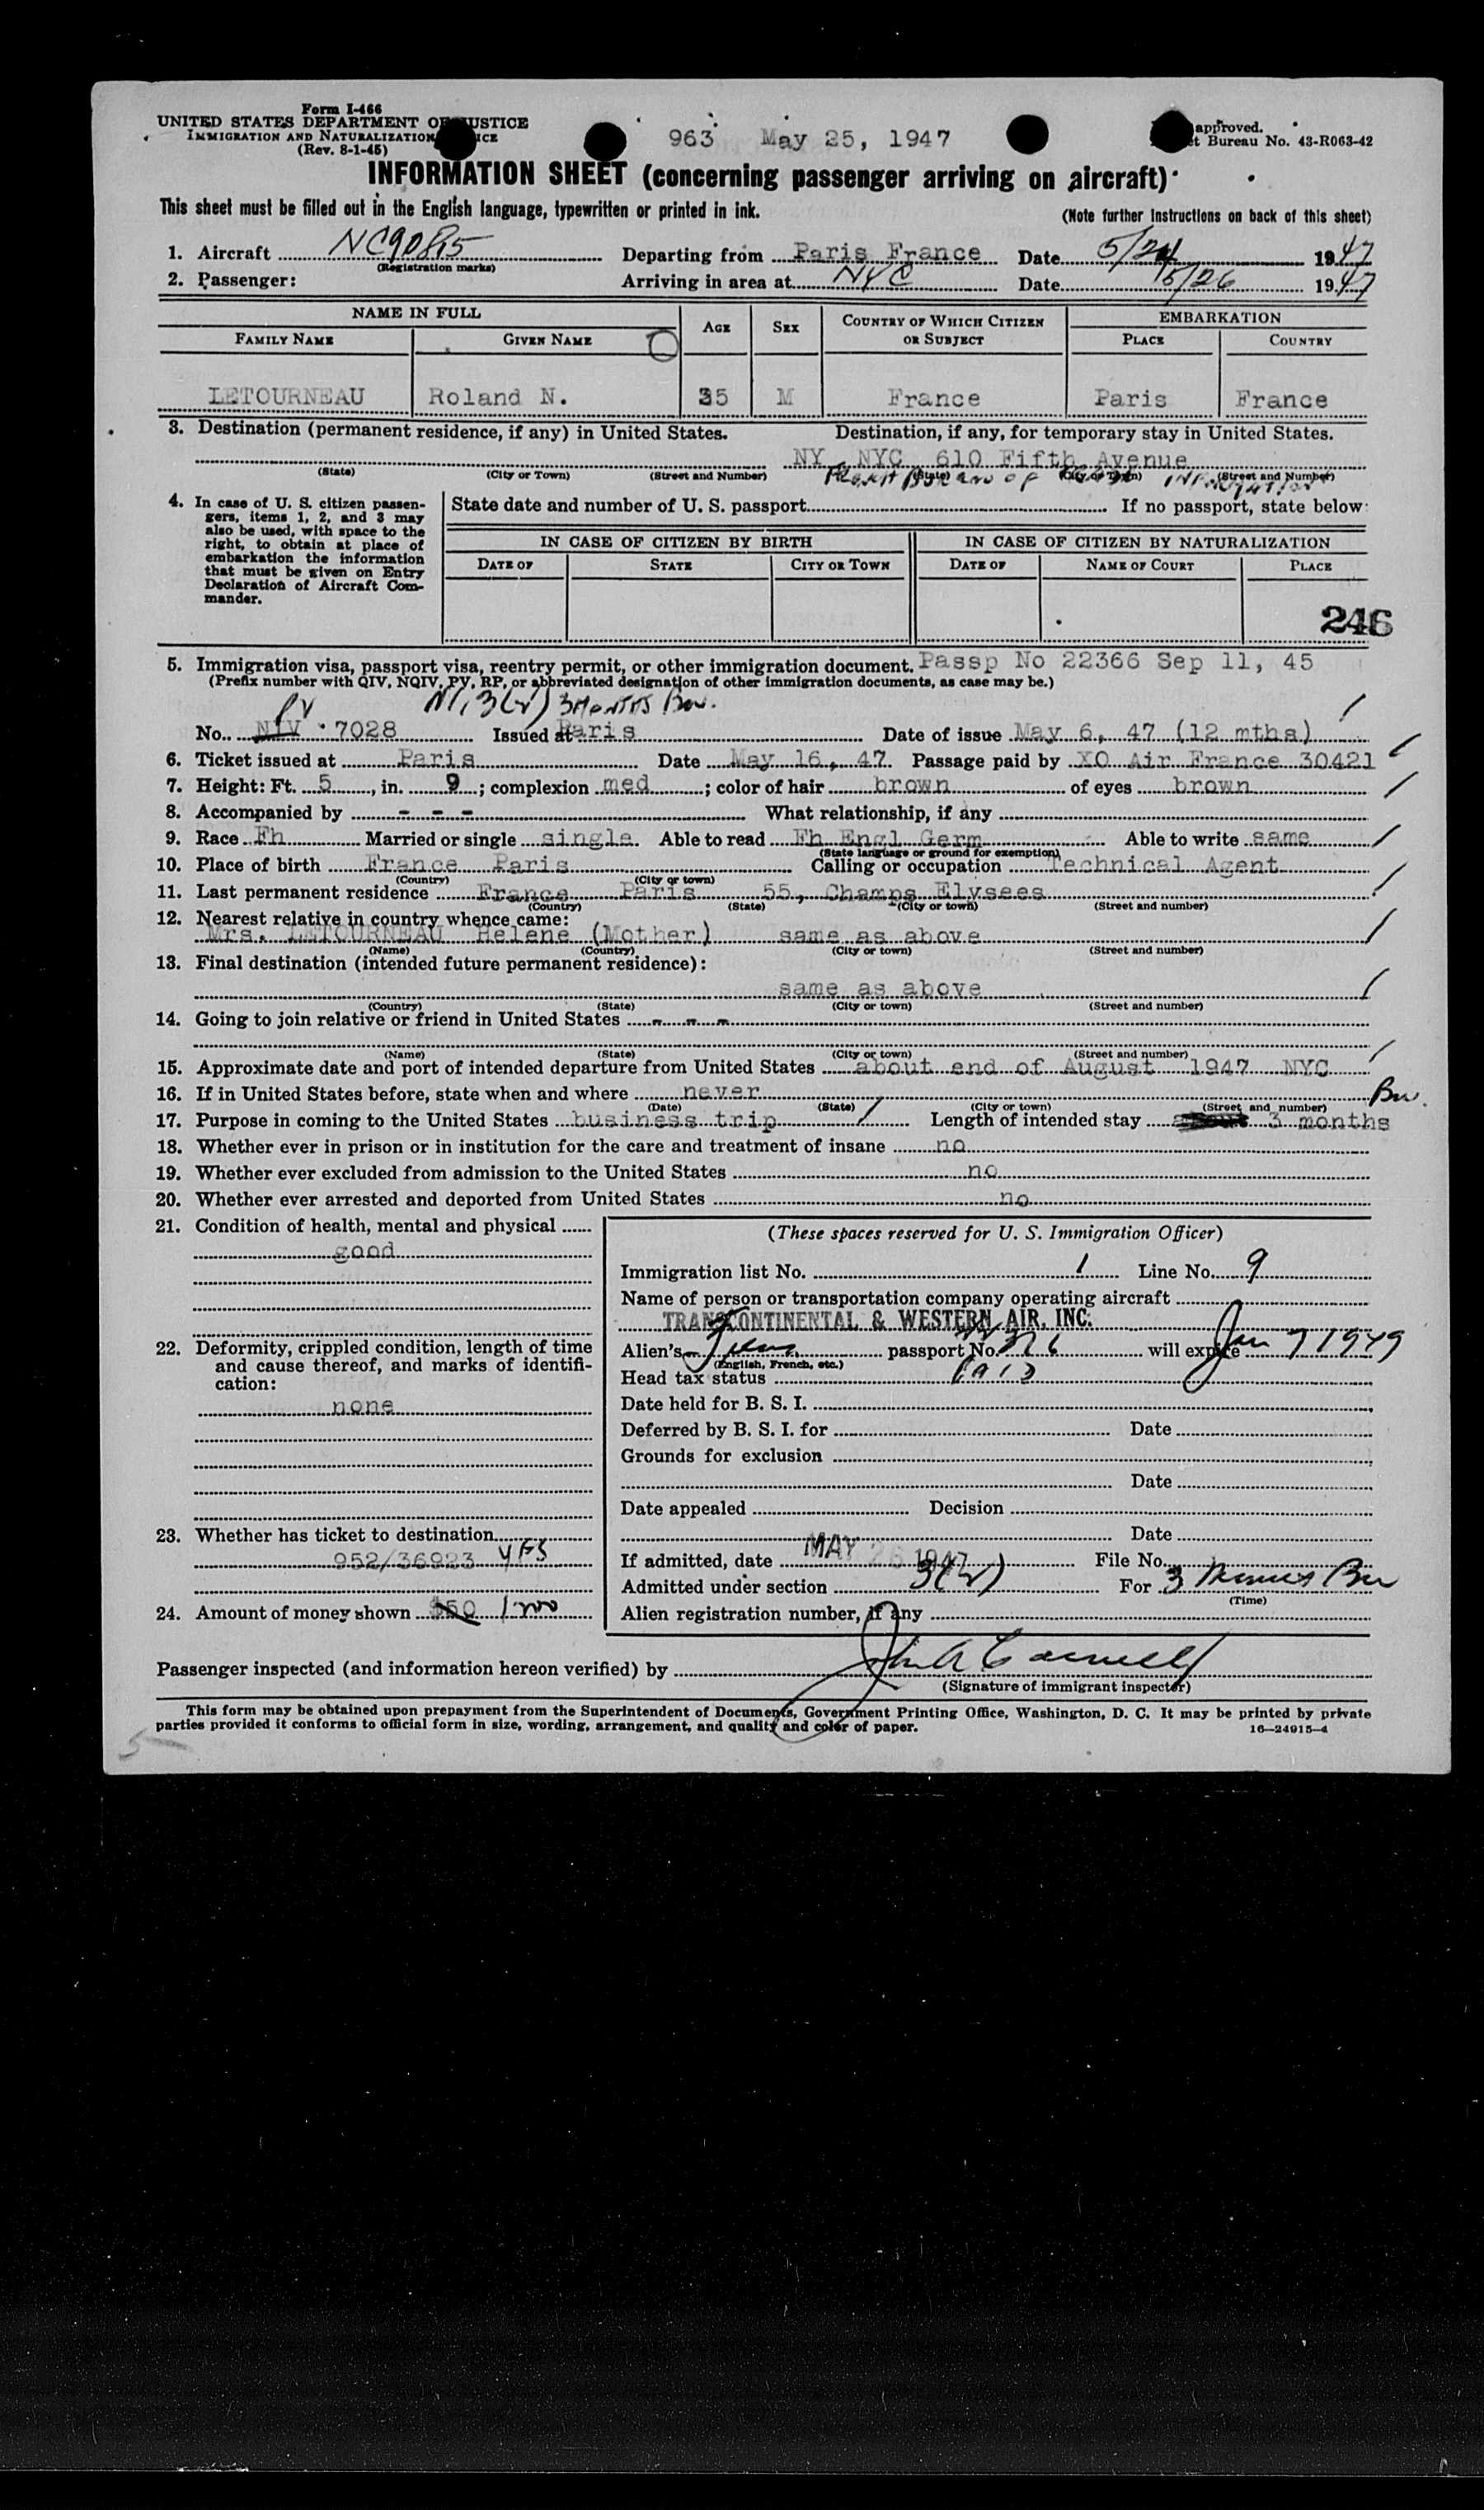 Form I-466
UNITED STATES DEPARTMENT OF JUSTICE
IMMIGRATION AND NATURALIZATION
(Rev. 8-1-45)
963 May 25, 1947
approved.
Bureau No. 43-R063-42
INFORMATION SHEET (concerning passenger arriving on aircraft)
This sheet must be filled out in the English language, typewritten or printed in ink.
(Note further instructions on back of this sheet)
1. Aircraft NC9085 Departing from Paris France Date 5/24 1947
(Registration marks)
2. Passenger: Arriving in area at NYC Date 5/26 1947
NAME IN FULL AGE SEX COUNTRY OF WHICH CITIZEN OR SUBJECT EMBARKATION
FAMILY NAME GIVEN NAME PLACE COUNTRY
LETOURNEAU Roland N. 35 M France Paris France
3. Destination (permanent residence, if any) in United States. Destination, if any, for temporary stay in United States.
NY NYC 610 Fifth Avenue
(State) (City or Town) (Street and Number) (State) (City or Town) (Street and Number)
4. In case of U. S. citizen passengers, items 1, 2, and 3 may also be used, with space to the right, to obtain at place of embarkation the information that must be given on Entry Declaration of Aircraft Commander.
State date and number of U. S. passport If no passport, state below:
IN CASE OF CITIZEN BY BIRTH IN CASE OF CITIZEN BY NATURALIZATION
DATE OF STATE CITY OR TOWN DATE OF NAME OF COURT PLACE
246
5. Immigration visa, passport visa, reentry permit, or other immigration document. Passp No 22366 Sep 11, 45
(Prefix number with QIV, NQIV, PV, RP, or abbreviated designation of other immigration documents, as case may be.)
PV 3(2) 3 MONTHS
No. NIV 7028 Issued at Paris Date of issue May 6, 47 (12 mths)
6. Ticket issued at Paris Date May 16, 47 Passage paid by XO Air France 30421
7. Height: Ft. 5, in. 9; complexion med; color of hair brown of eyes brown
8. Accompanied by - - - What relationship, if any
9. Race Fh Married or single single Able to read Fh Engl Germ Able to write same
(State language or ground for exemption)
10. Place of birth France Paris Calling or occupation Technical Agent
(Country) (City or town)
11. Last permanent residence France Paris 55, Champs Elysees
(Country) (State) (City or town) (Street and number)
12. Nearest relative in country whence came:
Mrs. LETOURNEAU Helene (Mother) same as above
(Name) (Country) (City or town) (Street and number)
13. Final destination (intended future permanent residence):
same as above
(Country) (State) (City or town) (Street and number)
14. Going to join relative or friend in United States - - -
(Name) (State) (City or town) (Street and number)
15. Approximate date and port of intended departure from United States about end of August 1947 NYC
16. If in United States before, state when and where never
(Date) (State) (City or town) (Street and number)
17. Purpose in coming to the United States business trip Length of intended stay 3 months
18. Whether ever in prison or in institution for the care and treatment of insane no
19. Whether ever excluded from admission to the United States no
20. Whether ever arrested and deported from United States no
21. Condition of health, mental and physical
good
22. Deformity, crippled condition, length of time and cause thereof, and marks of identification:
none
23. Whether has ticket to destination
952/36923 YES
24. Amount of money shown $50
(These spaces reserved for U. S. Immigration Officer)
Immigration list No. 1 Line No. 9
Name of person or transportation company operating aircraft
TRANSCONTINENTAL & WESTERN AIR, INC.
Alien's passport No. will expire Jan 7 1949
(English, French, etc.)
Head tax status
Date held for B. S. I.
Deferred by B. S. I. for Date
Grounds for exclusion
Date
Date appealed Decision
Date
If admitted, date MAY 26 1947 File No.
Admitted under section 3(2) For 3
(Time)
Alien registration number, if any
Passenger inspected (and information hereon verified) by
(Signature of immigrant inspector)
This form may be obtained upon prepayment from the Superintendent of Documents, Government Printing Office, Washington, D. C. It may be printed by private
parties provided it conforms to official form in size, wording, arrangement, and quality and color of paper. 16—24915-4
5